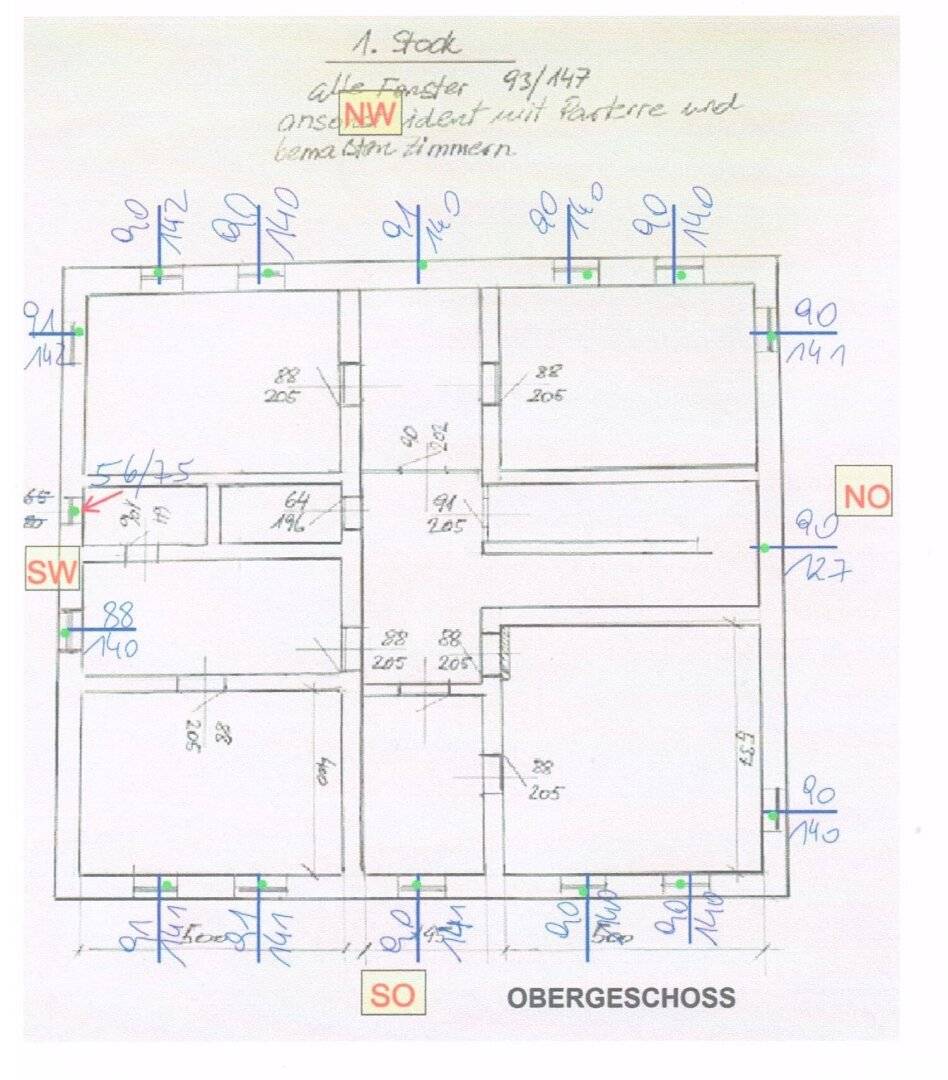 1. Stock
alte Fenster 93/147
NW
anson ident mit Parterre und
bemaßten Zimmern
90
142
90
140
91
140
90
140
90
140
91
142
90
141
88
205
88
205
90
202
56/75
65
80
64
196
64
196
91
205
NO
90
127
SW
88
140
88
205
88
205
88
205
400
537
88
205
90
140
91
141
91
141
90
141
90
140
90
140
500
195
500
SO
OBERGESCHOSS